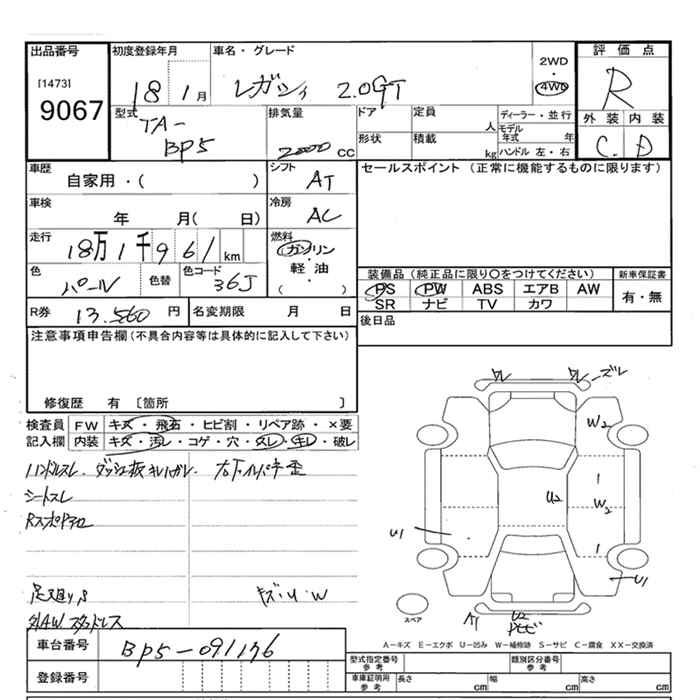 出品番号
[1473]
9067
初度登録年月
18 1月
車名・グレード
レガシィ 2.0GT
2WD
・
4WD
評価点
R
外装 内装
C D
型式
TA-
BP5
排気量
2000 CC
ドア
定員
人
ディーラー・並行
形状
積載
kg
モデル年式 年
ハンドル 左・右
車歴
自家用・( )
シフト
AT
セールスポイント (正常に機能するものに限ります)
車検
年 月( 日)
冷房
AC
走行
18万1千961km
燃料
ガソリン
・
軽油
( )
色
パール
色替
色コード
36J
装備品 (純正品に限り○をつけてください)
新車保証書
PS PW ABS エアB AW
SR ナビ TV カワ
有・無
R券 13,560 円
名変期限 月 日
後日品
注意事項申告欄(不具合内容等は具体的に記入して下さい)
修復歴 有 〔箇所 〕
検査員記入欄
FW キズ・飛石・ヒビ割・リペア跡・×要
内装 キズ・汚レ・コゲ・穴・スレ・キレ・破レ
ハンドルスレ
シートスレ
足廻りS
キズ・U・W
外AW スタッドレス
W2
1
W2
U2
1
U1
U1
A1
U2
スペア
A-キズ E-エクボ U-凹み W-補修跡 S-サビ C-腐食 XX-交換済
車台番号
BP5-091176
登録番号
型式指定番号
参考
類別区分番号
参考
車庫証明用
参考
長さ cm
幅 cm
高さ cm